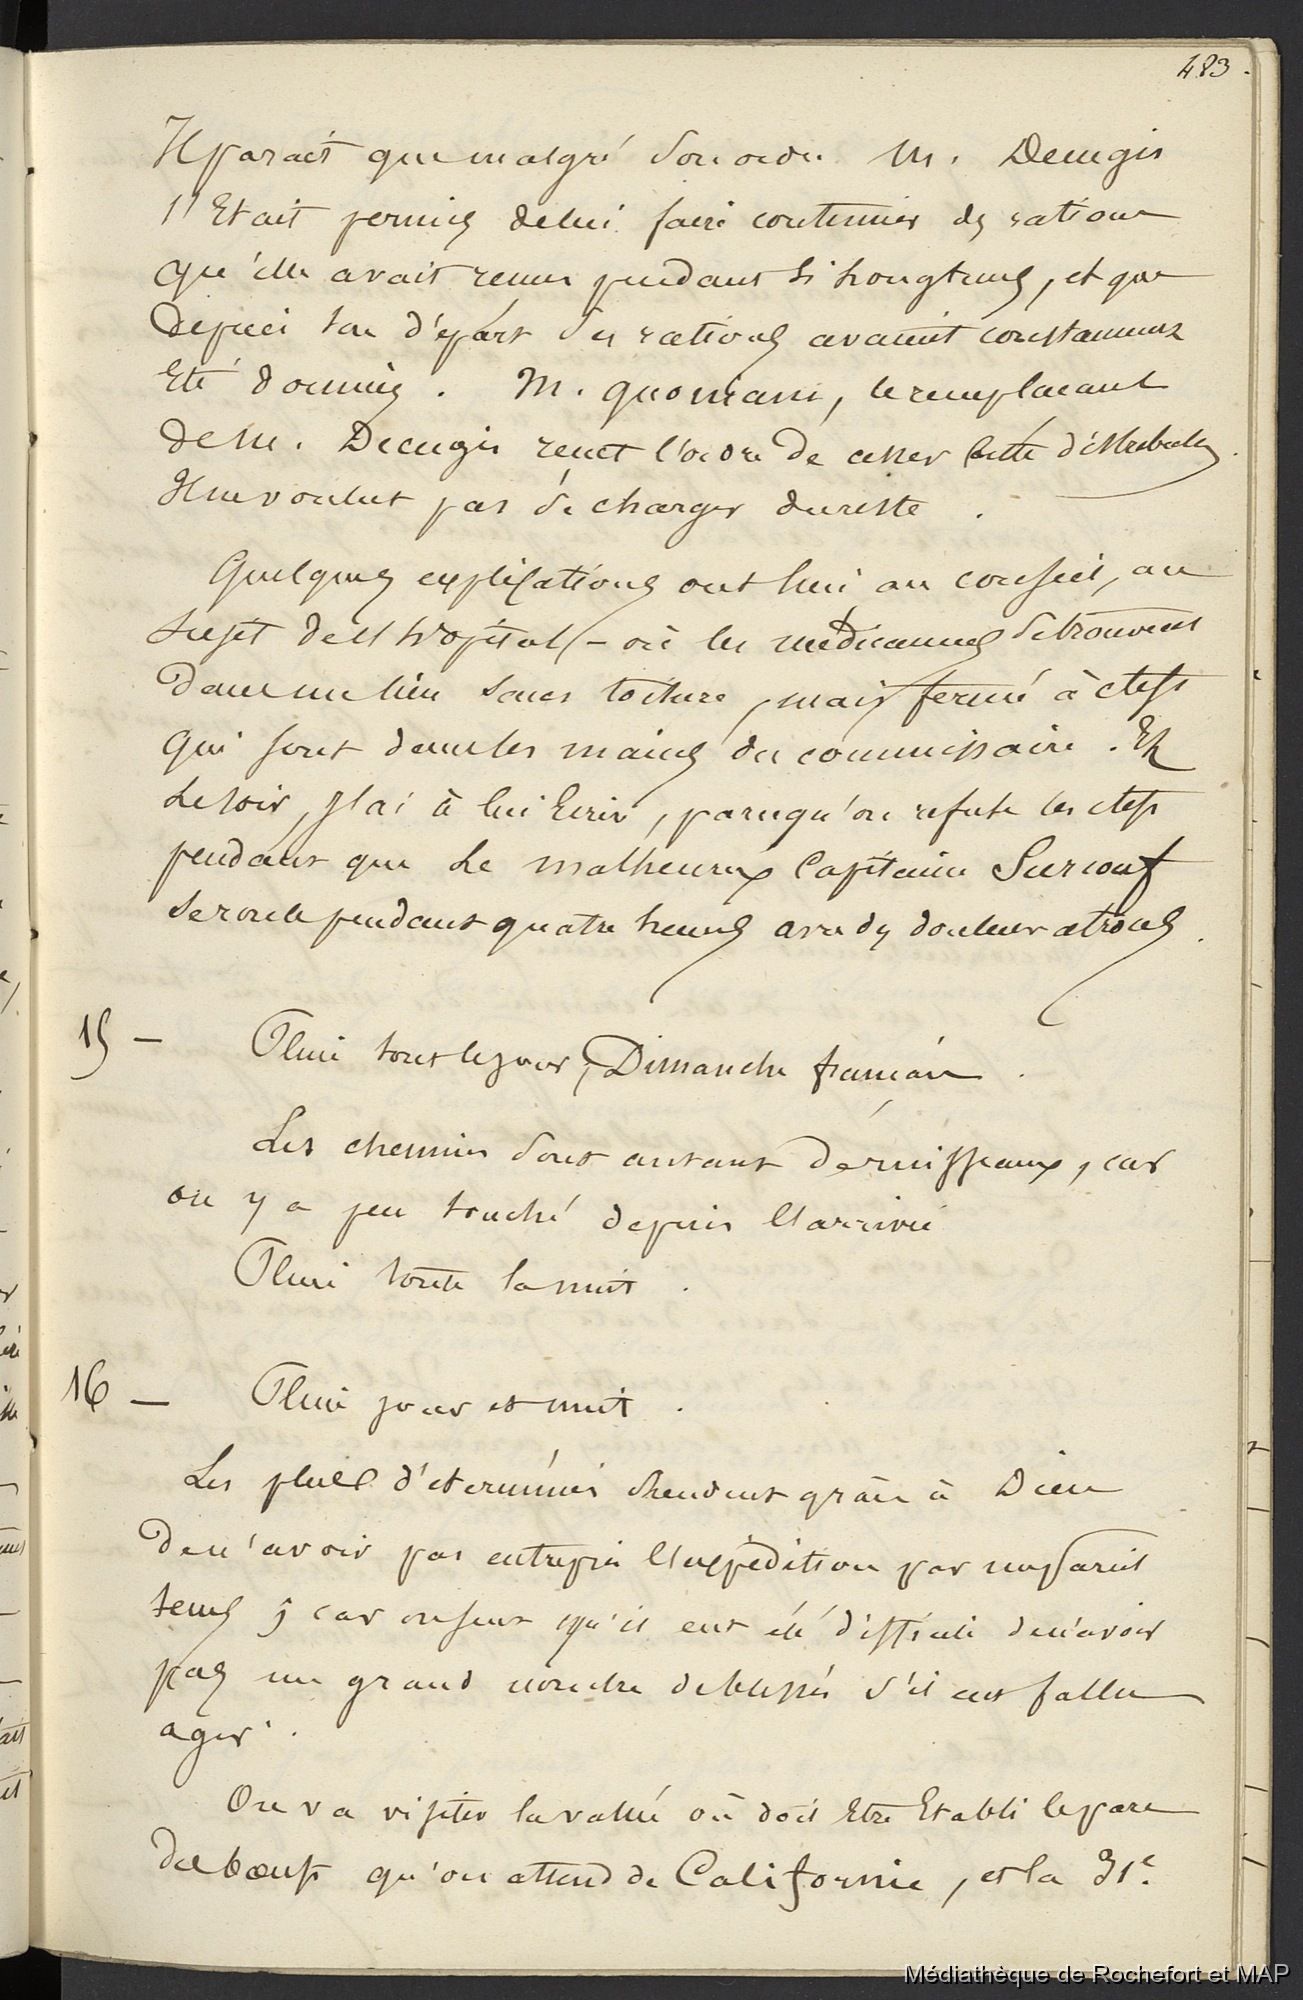 483.
Il parait que malgré son ordre M. Decugis
s'Etait permis de lui faire continuer des rations
qu'elle avait reçues pendant si longtems, et que
Depuis son départ des rations avaient constamment
Eté données. M. Guomiani, le remplaçant
de M. Decugis reçut l'ordre de cesser cette distribution.
Il ne voulut pas se charger du reste.
Quelques explications ont lieu au conseil, au
sujet de l'hopital - où les médicamens se trouvent
dans un lieu sans toiture, mais fermé à clefs
qui sont dans les mains du commissaire. Et
Le soir, j'ai à lui Ecrire, parcequ'on refuse les clefs
pendant que Le malheureux Capitaine Surcouf
se roule pendant quatre heures avec des douleurs atroces.
15 — Pluie tout le jour, Dimanche français.
Les chemins sont autant de ruisseaux, car
on y a peu touché depuis l'arrivée
Pluie toute la nuit.
16 — Pluie jour et nuit.
Les plus déterminés rendent grâce à Dieu
de n'avoir pas entrepris l'expédition par un pareil
tems; car on sent qu'il eut été difficile de n'avoir
pas un grand nombre de blessés s'il eut fallu
agir.
On va visiter la vallée où doit Etre Etabli le parc
de bœufs qu'on attend de Californie, et la 31e.
Médiathèque de Rochefort et MAP